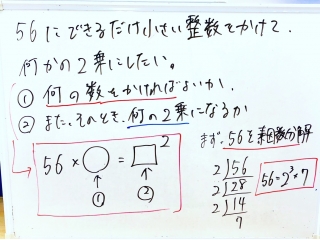 56にできるだけ小さい整数をかけて、
何かの2乗にしたい。
① 何の数をかければよいか。
② また、そのとき、何の2乗になるか
56 × ○ = □²
↑ ↑
① ②
まず、56を素因数分解
2 ) 56
2 ) 28
2 ) 14
7
56 = 2³ × 7